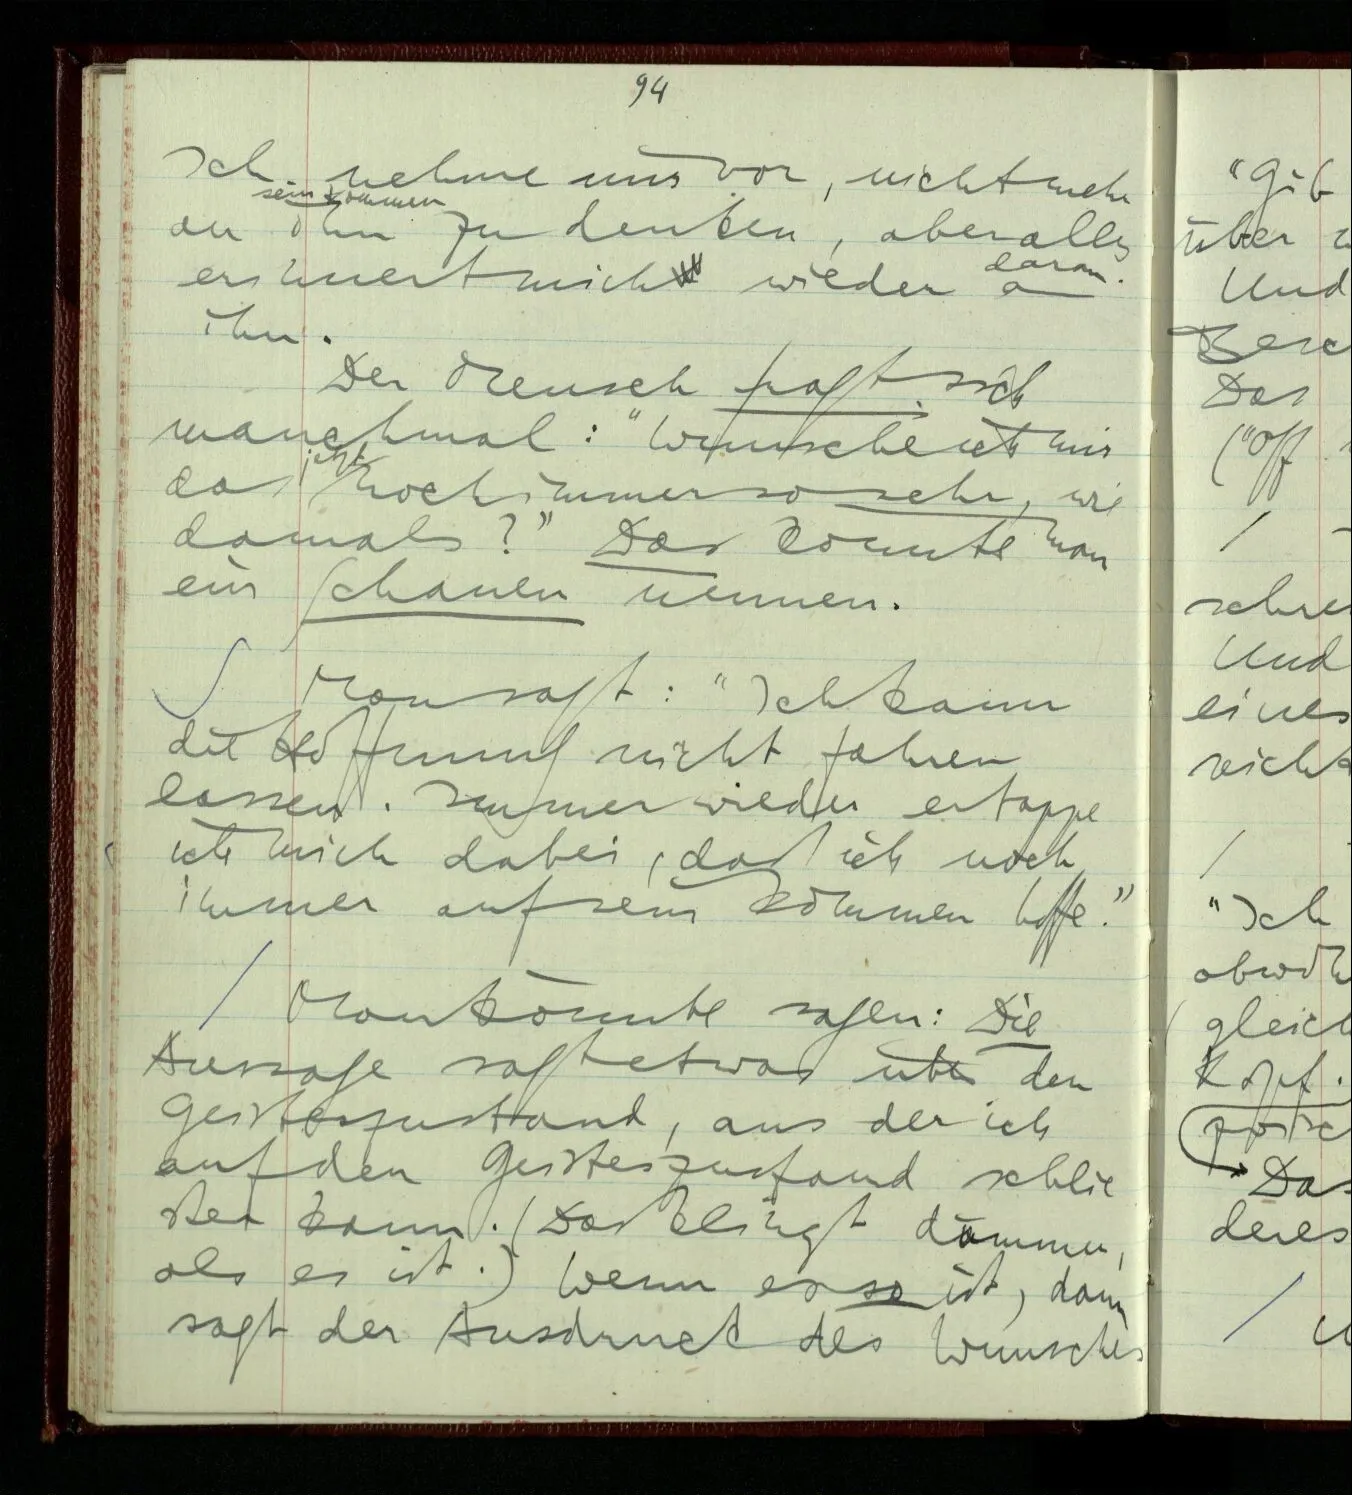 94
Ich nehme mir vor, nicht mehr
sein Kommen
an ihn zu denken, aber alles
erinnert mich wieder an
daran.
ihn.
Der Mensch fragt sich
manchmal: "Wünsche ich mir
jetzt
das noch immer so sehr, wie
damals?" Das könnte man
ein Schauen nennen.
Man sagt: "Ich kann
die Hoffnung nicht fahren
lassen. Immer wieder ertappe
ich mich dabei, daß ich noch
immer auf sein Kommen hoffe."
/ Man könnte sagen: Die
Aussage sagt etwas über den
Geisteszustand, aus der ich
auf den Geisteszustand schlie
ßen kann. (Das klingt dümmer,
als es ist.) Wenn es so ist, dann
sagt der Ausdruck des Wunsches
"Gib
über
Und
Besc
Das
("Off
/
schre
Und
eines
nicht
/
"Ich
obwoh
gleich
Kopf.
Das
deres
/